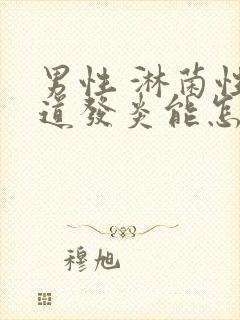 男性 淋菌性
道發炎能怎
穆旭